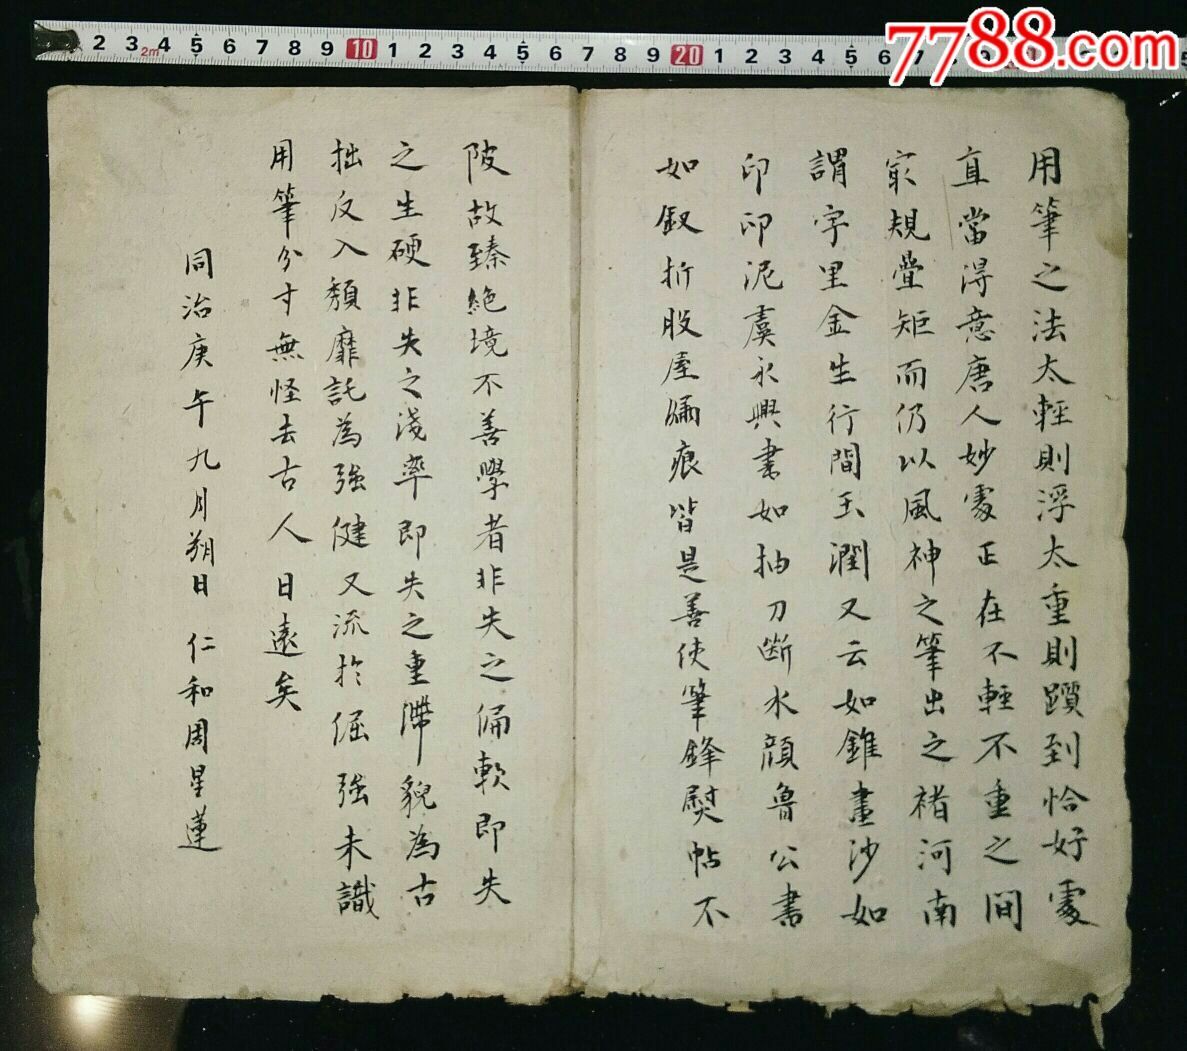 2 3 4 5 6 7 8 9 10 1 2 3 4 5 6 7 8 9 20 1 2 3 4 5 6 7
2m
7788.com
用筆之法太輕則浮太重則躓到恰好處
直當得意唐人妙處正在不輕不重之間
家規疊矩而仍以風神之筆出之褚河南
謂字里金生行間玉潤又云如錐畫沙如
印印泥虞永興書如抽刀斷水顏魯公書
如釵折股屋漏痕皆是善使筆鋒熨帖不
陂故臻絕境不善學者非失之偏軟即失
之生硬非失之淺率即失之重滯貌為古
拙反入頹靡託為強健又流於倔強未識
用筆分寸無怪去古人日遠矣
同治庚午九月朔日 仁和周星蓮